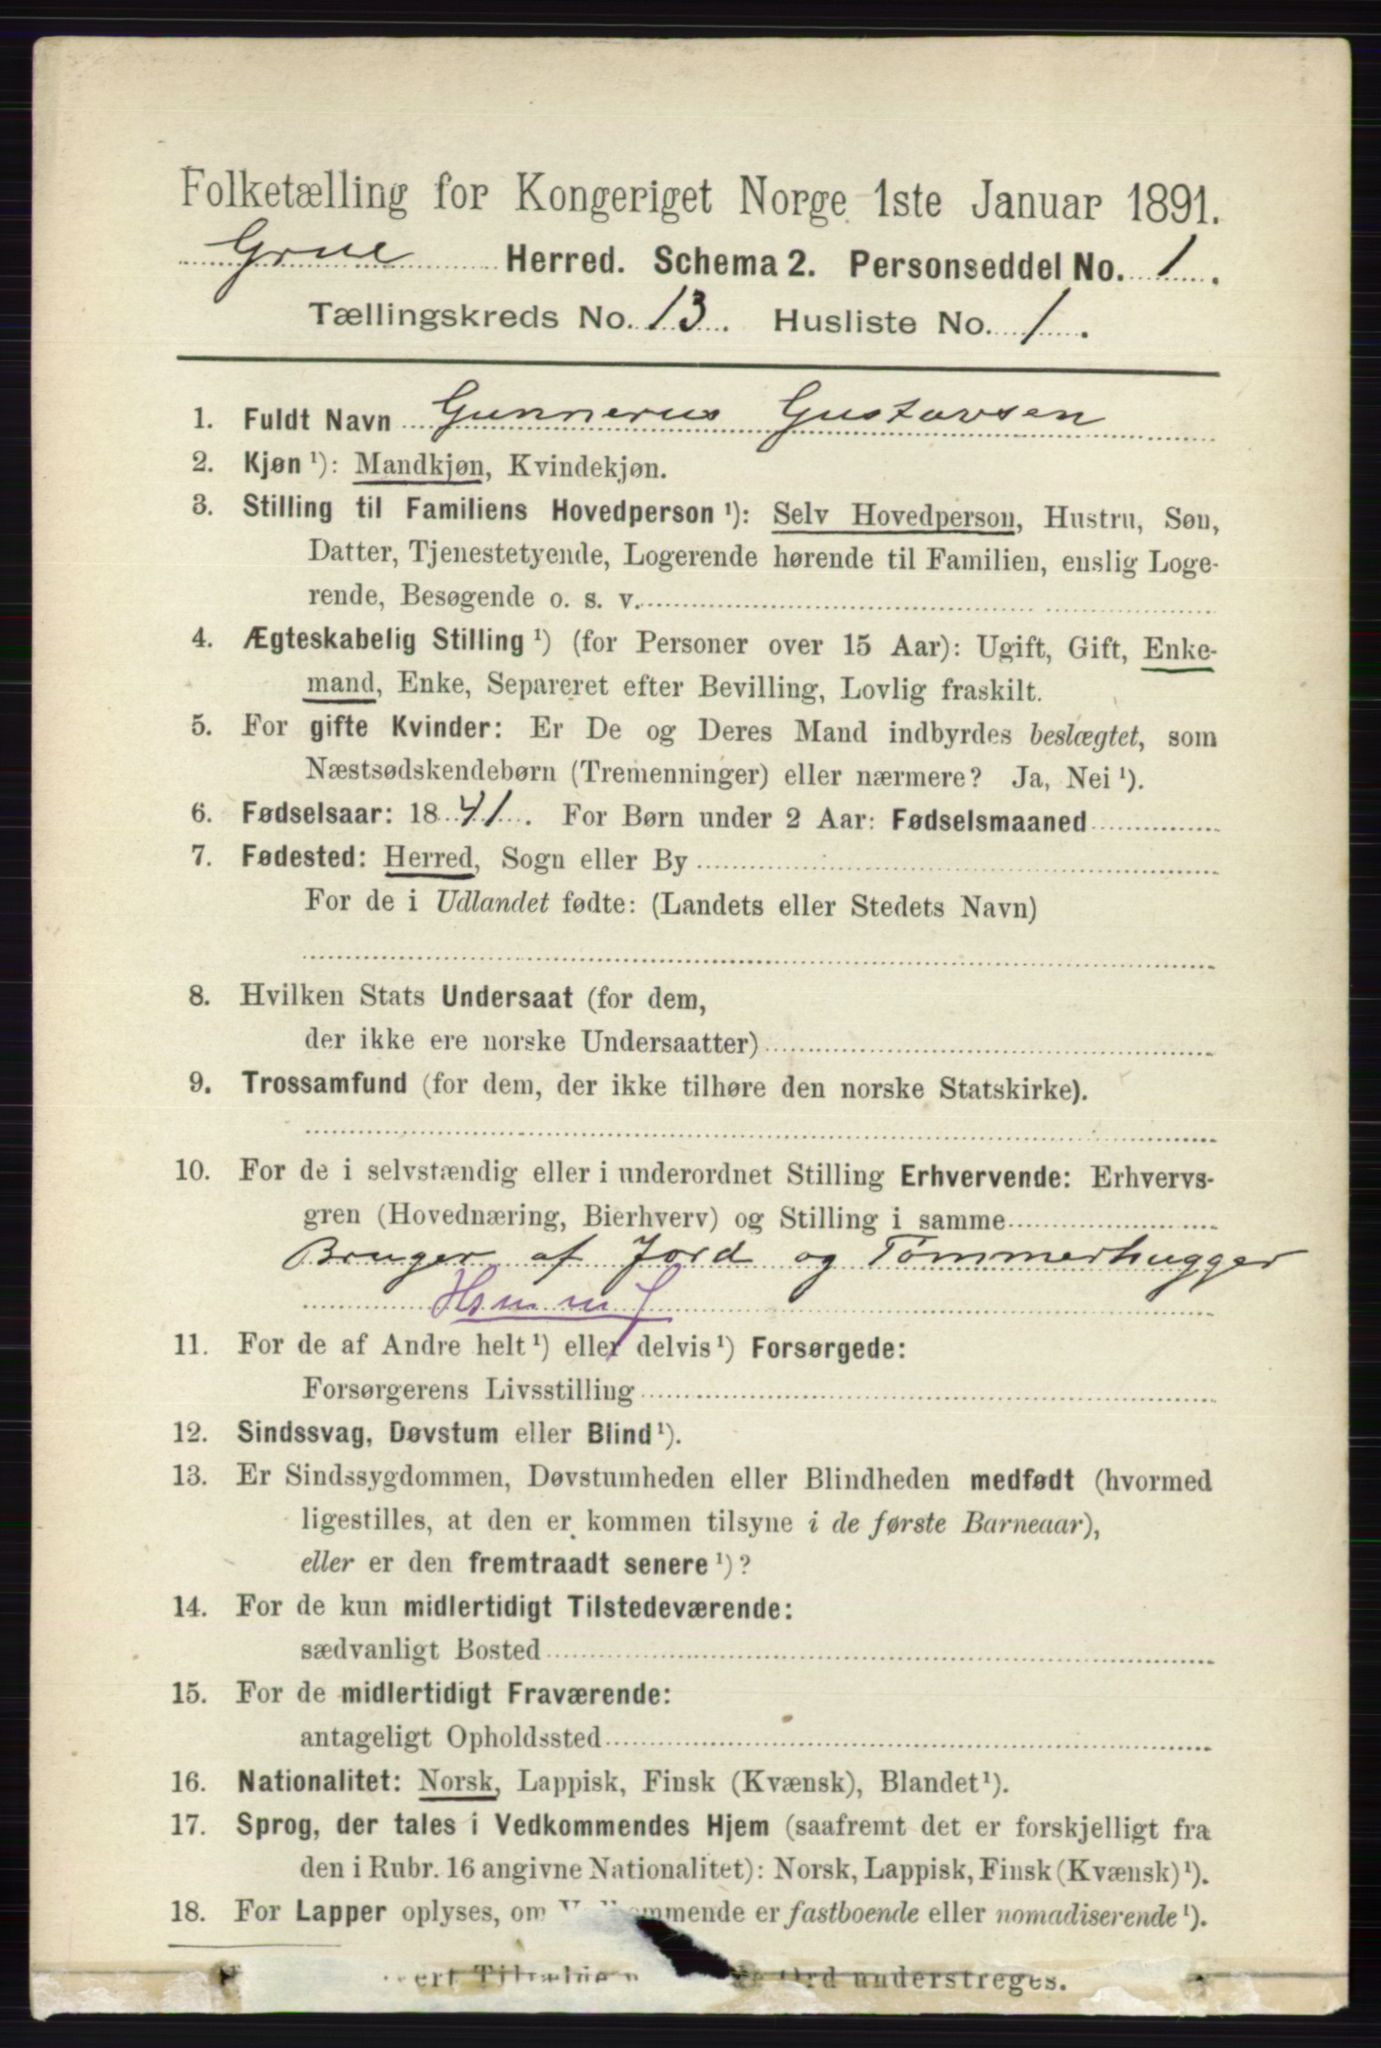 Folketælling for Kongeriget Norge 1ste Januar 1891.
Grue Herred. Schema 2. Personseddel No. 1.
Tællingskreds No. 13. Husliste No. 1.
1. Fuldt Navn Gunnerus Gustavsen
2. Kjøn ¹): Mandkjøn, Kvindekjøn.
3. Stilling til Familiens Hovedperson ¹): Selv Hovedperson, Hustru, Søn,
Datter, Tjenestetyende, Logerende hørende til Familien, enslig Loge-
rende, Besøgende o. s. v.
4. Ægteskabelig Stilling ¹) (for Personer over 15 Aar): Ugift, Gift, Enke-
mand, Enke, Separeret efter Bevilling, Lovlig fraskilt.
5. For gifte Kvinder: Er De og Deres Mand indbyrdes beslægtet, som
Næstsødskendebørn (Tremenninger) eller nærmere? Ja, Nei ¹).
6. Fødselsaar: 1841. For Børn under 2 Aar: Fødselsmaaned
7. Fødested: Herred, Sogn eller By
For de i Udlandet fødte: (Landets eller Stedets Navn)
8. Hvilken Stats Undersaat (for dem,
der ikke ere norske Undersaatter)
9. Trossamfund (for dem, der ikke tilhøre den norske Statskirke).
10. For de i selvstændig eller i underordnet Stilling Erhvervende: Erhvervs-
gren (Hovednæring, Bierhverv) og Stilling i samme
Bruger af Jord og Tømmerhugger
Hsm m J
11. For de af Andre helt ¹) eller delvis ¹) Forsørgede:
Forsørgerens Livsstilling
12. Sindssvag, Døvstum eller Blind ¹).
13. Er Sindssygdommen, Døvstumheden eller Blindheden medfødt (hvormed
ligestilles, at den er kommen tilsyne i de første Barneaar),
eller er den fremtraadt senere ¹)?
14. For de kun midlertidigt Tilstedeværende:
sædvanligt Bosted
15. For de midlertidigt Fraværende:
antageligt Opholdssted
16. Nationalitet: Norsk, Lappisk, Finsk (Kvænsk), Blandet ¹).
17. Sprog, der tales i Vedkommendes Hjem (saafremt det er forskjelligt fra
den i Rubr. 16 angivne Nationalitet): Norsk, Lappisk, Finsk (Kvænsk) ¹).
18. For Lapper oplyses, om Vedkommende er fastboende eller nomadiserende ¹).
Ord understreges.